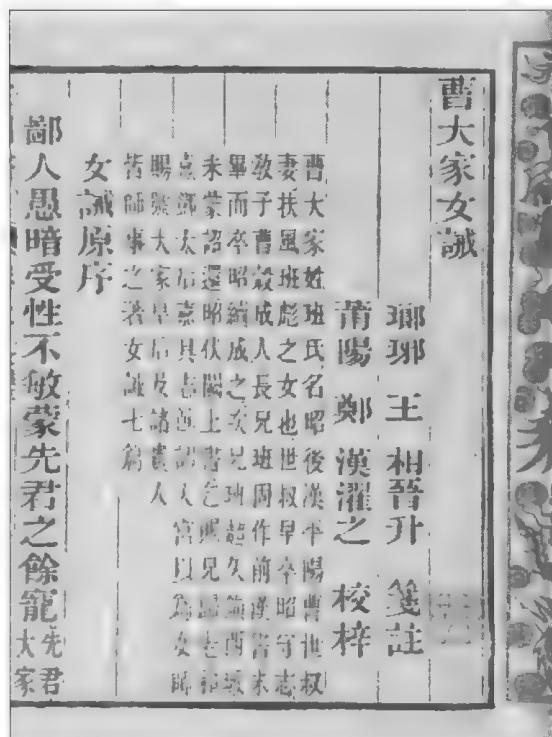 曹大家女誡
瑯琊 王 相晉升 箋註
莆陽 鄭 漢濯之 校梓
曹大家姓班氏名昭後漢平陽曹世叔
妻扶風班彪之女也世叔早卒昭守志
教子曹榖成人長兄班固作前漢書未
畢而卒昭續成之次兄班超久鎮西域
未蒙詔還昭伏闕上書乞賜兄歸老
鄧太后嘉其志 詔入宮以為女師
賜號大家皇后及諸貴人
皆師事之著女誡七篇
女誡原序
鄙人愚暗受性不敏蒙先君之餘寵先君
大家